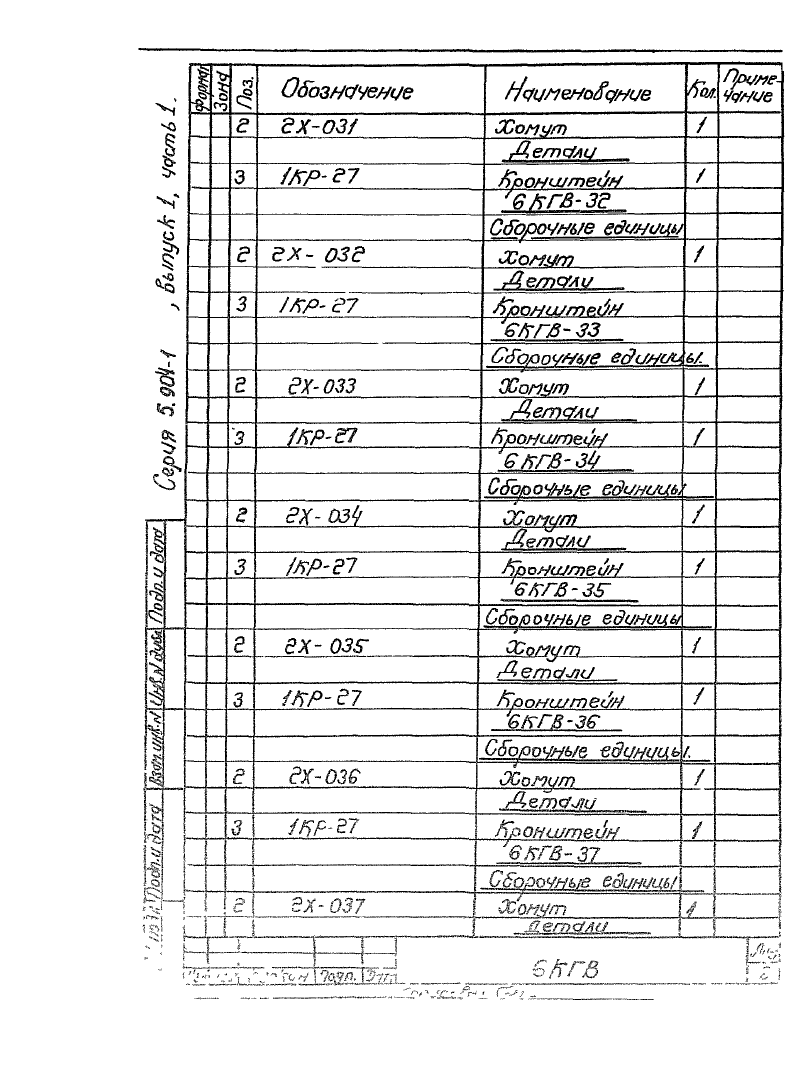 Серия 5.904-1 , выпуск 1, часть 1.
Формат Зона Поз. Обозначение Наименование Кол. Приме-
чание
2 2Х-031 Хомут 1
Детали
3 1КР-27 Кронштейн 1
6КГВ-32
Сборочные единицы
2 2Х-032 Хомут 1
Детали
3 1КР-27 Кронштейн
6КГВ-33
Сборочные единицы.
2 2Х-033 Хомут 1
Детали
3 1КР-27 Кронштейн 1
6КГВ-34
Сборочные единицы
2 2Х-034 Хомут 1
Детали
3 1КР-27 Кронштейн 1
6КГВ-35
Сборочные единицы
2 2Х-035 Хомут 1
Детали
3 1КР-27 Кронштейн 1
6КГВ-36
Сборочные единицы.
2 2Х-036 Хомут 1
Детали
3 1КР-27 Кронштейн 1
6КГВ-37
Сборочные единицы
2 2Х-037 Хомут 1
Детали
Подп. и дата
Инв. N дубл
Взам. инв. N
Подп. и дата
Подп.
6КГВ
Лист
2